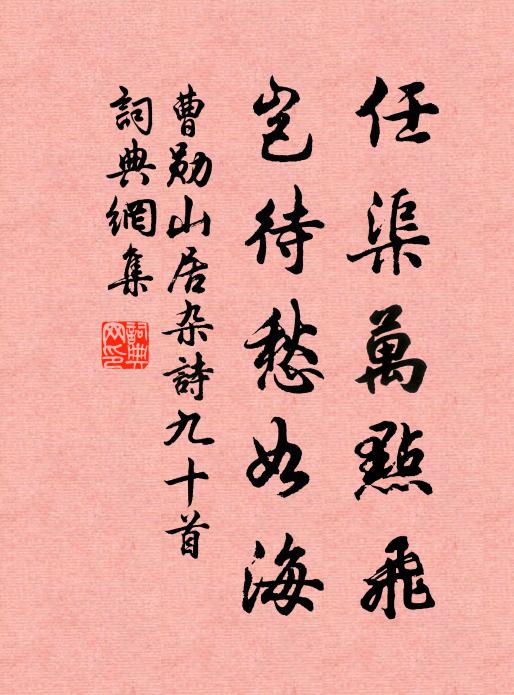 任渠萬點飛
豈待愁如海
曹勛山居杂詩九十首
詞典網集
詞典网印